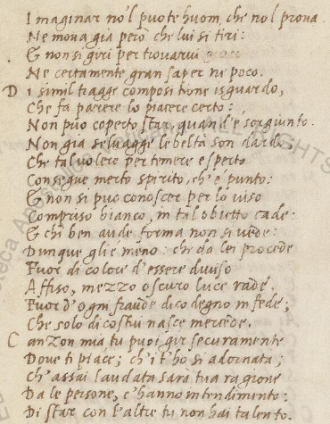 Imaginar no'l puote huom, che nol prova
Ne mova gia però che lui si tiri:
E non si giri per trovarui
Ne certamente gran saper ne poco.
D i simil tragge compositione isguardo,
Che fa parere lo piacere certo:
Non può coperto star, quand'e sorgiunto.
Non gia selvagge le beltà son dardo:
Che tal volere per temere esperto
Consegue merto spirito, ch'e punto:
E non si puo conoscer per lo viso
Compriso bianco, in tal obietto cade:
E chi ben aude forma non si vede:
Dunque gli e meno: che da lei procede
Fuor di colore d'essere diviso
Affiso, mezzo oscuro luce rade.
Fuor d'ogni fraude dico degno in fede;
Che solo di costui nasce mercede.
C anzon mia tu puoi gir securamente
Dove ti piace; ch'i t'ho si adornata;
Ch'assai laudata sarà tua ragione
Da le persone, c'hanno intendimento:
Di star con l'altre tu non hai talento.